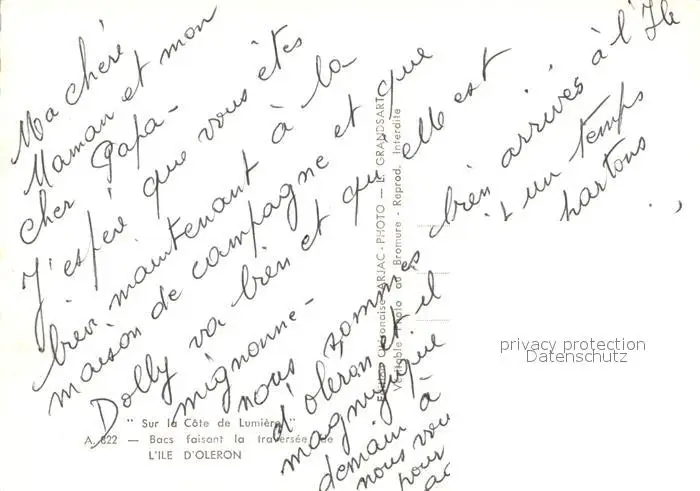 Ma chère
Maman et mon
cher Papa -
J'espère que vous êtes
bien maintenant à la
maison de campagne et que
Dolly va bien et qu'elle est
mignonne -
nous sommes bien arrivés à l'Ile
d'oleron et il un temps
magnifique partons
demain à
nous
pour
" Sur la Côte de Lumière "
A. 822 — Bacs faisant la traversée de
L'ILE D'OLERON
ARJAC-PHOTO — L. GRANDSART
Véritable Photo au Bromure - Reprod. Interdite
privacy protection
Datenschutz